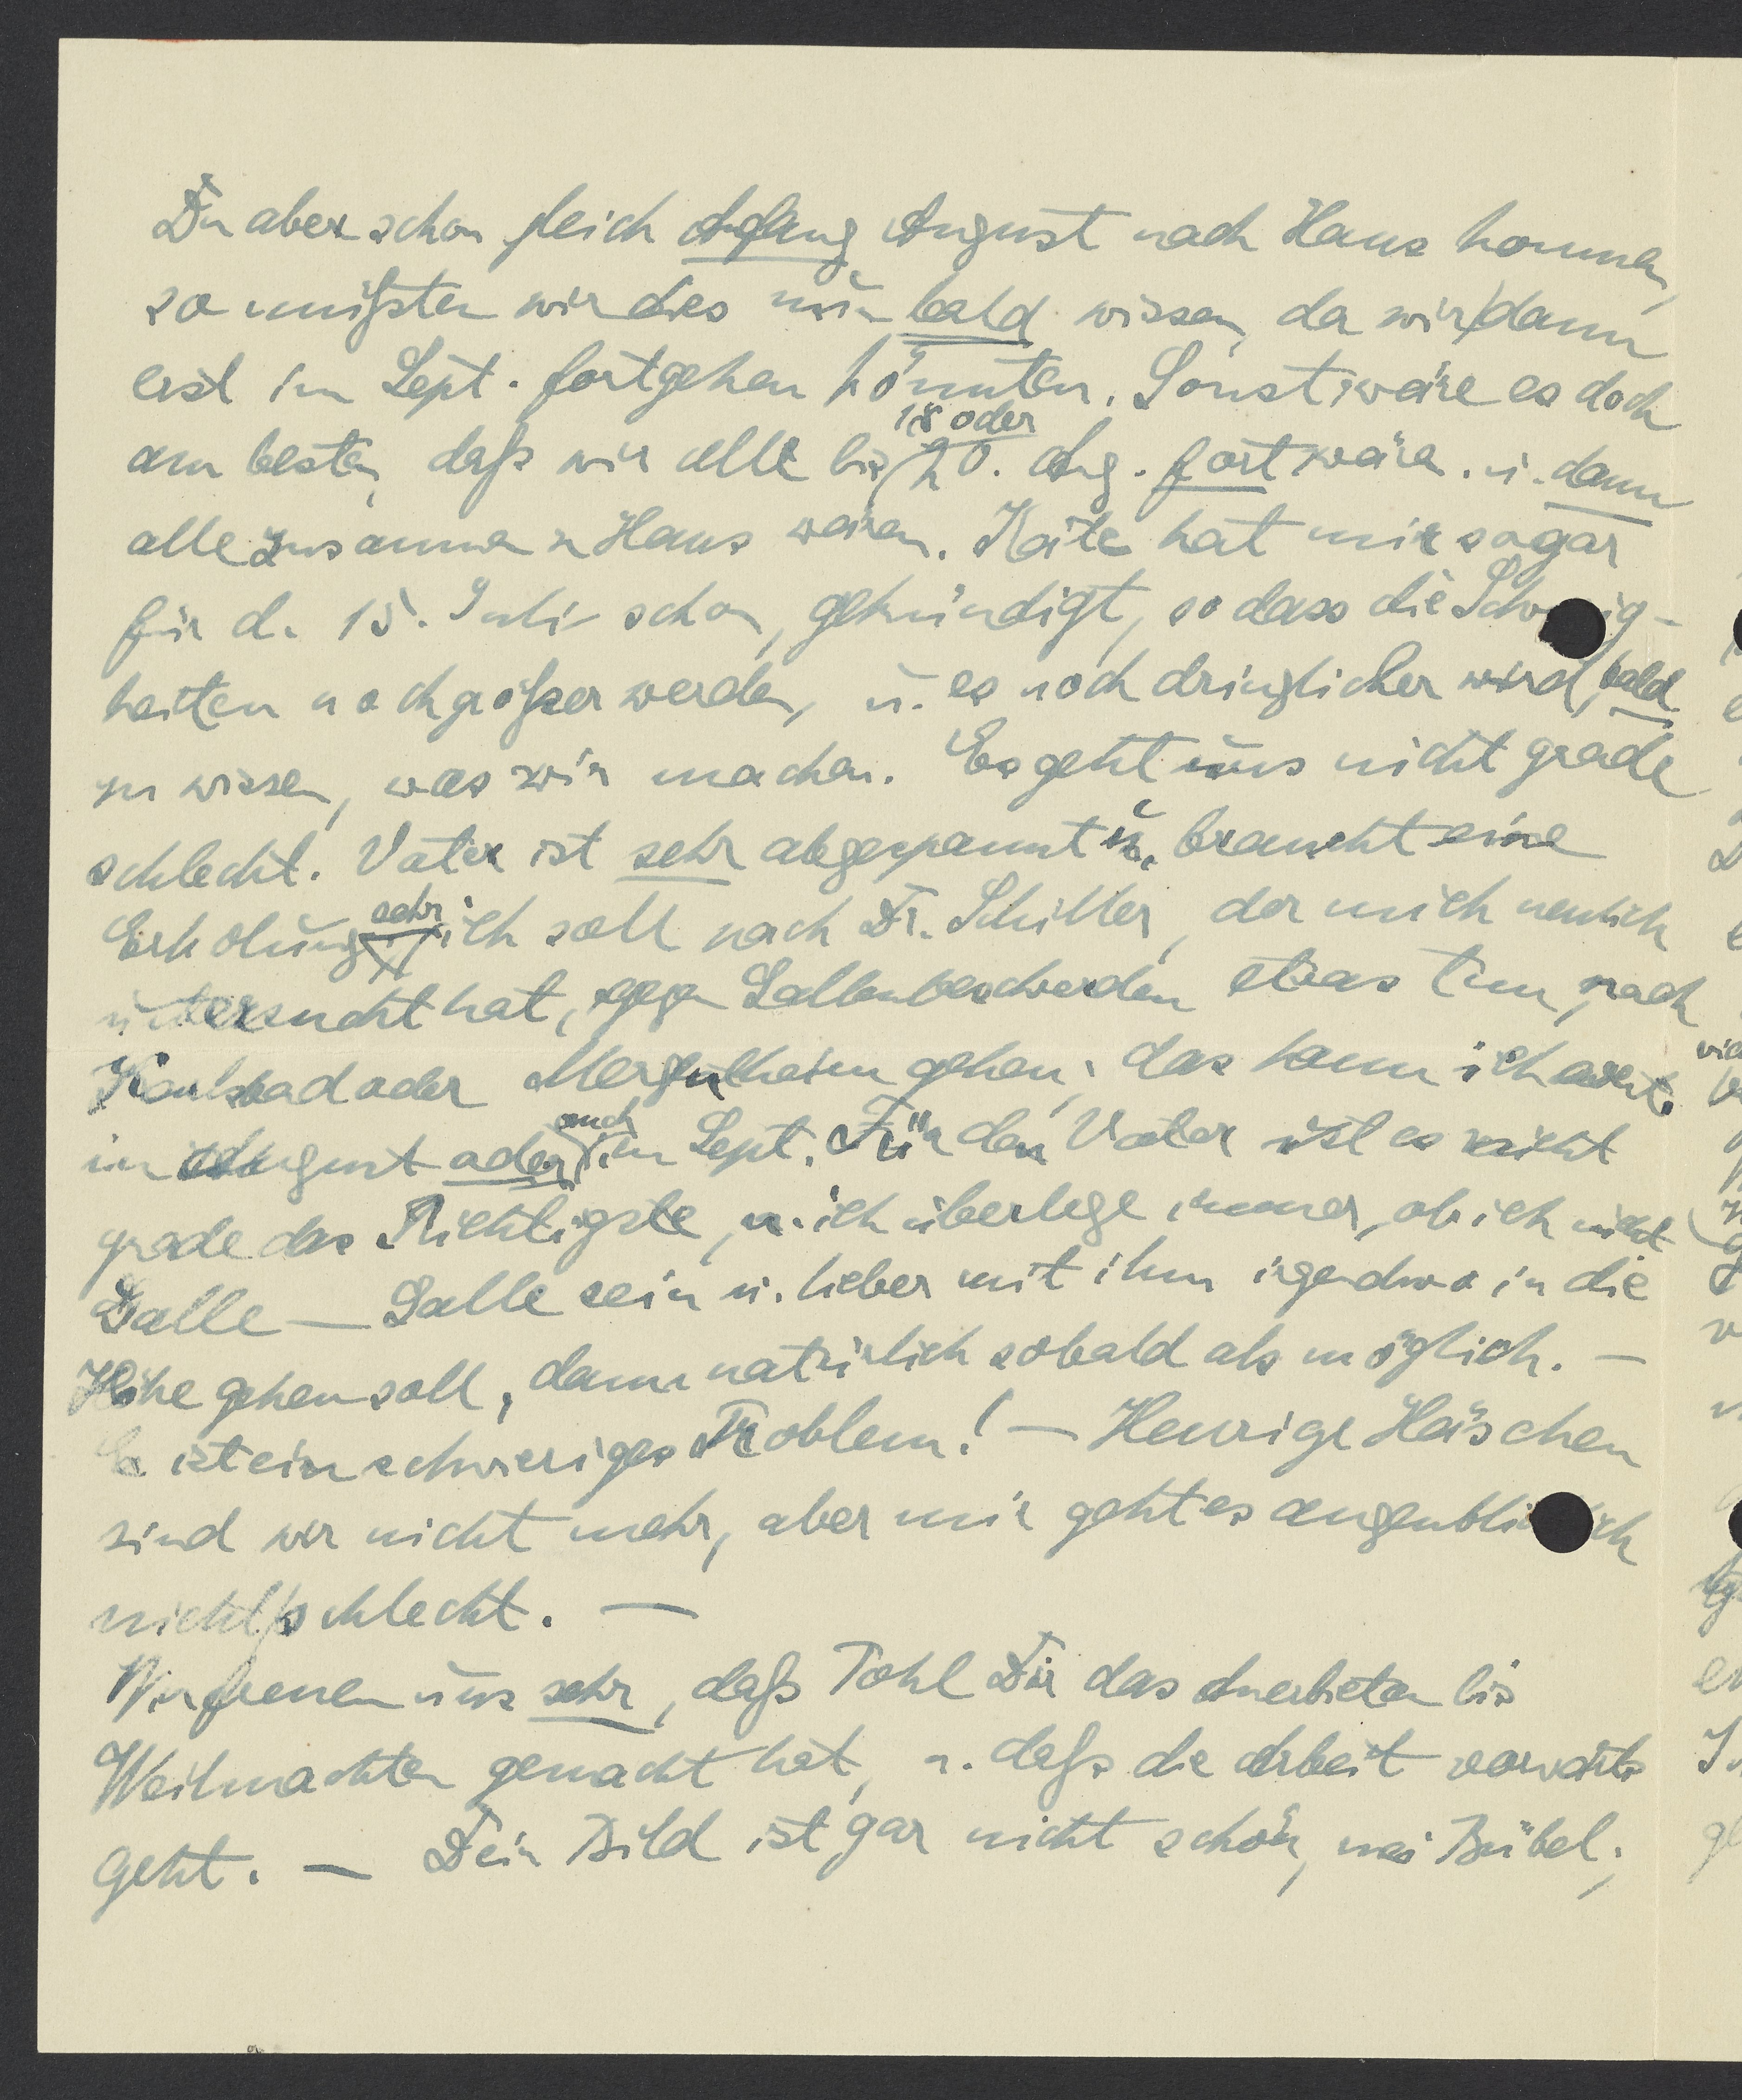 Du aber schon gleich Anfang August nach Haus kommen,
so müßten wir dies nun bald wissen, da wir dann
erst im Sept. fortgehen könnten. Sonst wäre es doch
am besten, daß wir alle bis 18 oder 20. Aug. fort wären. u. dann
alle zusammen z Haus wären. Käte hat mir sogar
für d. 15. Juli schon gekündigt, so dass die Schwierig-
keiten noch größer werden, u. es noch dringlicher wird, bald
zu wissen, was wir machen. Es geht uns nicht grade
schlecht. Vater ist sehr abgespannt u. braucht eine
Erholung sehr, ich soll nach Dr. Schiller, der mich neulich
untersucht hat, gegen Gallenbeschwerden etwas tun, nach
Karlsbad oder Mergentheim gehen, das kann ich event.
im August oder auch im Sept. Für den Vater ist es nicht
grade das Richtigste, u. ich überlege immer, ob ich nicht
Galle — Galle sein u. lieber mit ihm irgendwo in die
Höhe gehen soll, dann natürlich sobald als möglich. —
Es ist ein schwieriges Problem! — Heurige Häschen
sind wir nicht mehr, aber mir geht es augenblicklich
nicht schlecht. —
Wir freuen uns sehr, daß Pohl Dir das Anerbieten bis
Weihnachten gemacht hat, u. daß die Arbeit vorwärts
geht. — Dein Bild ist gar nicht schön, mei Bübel;